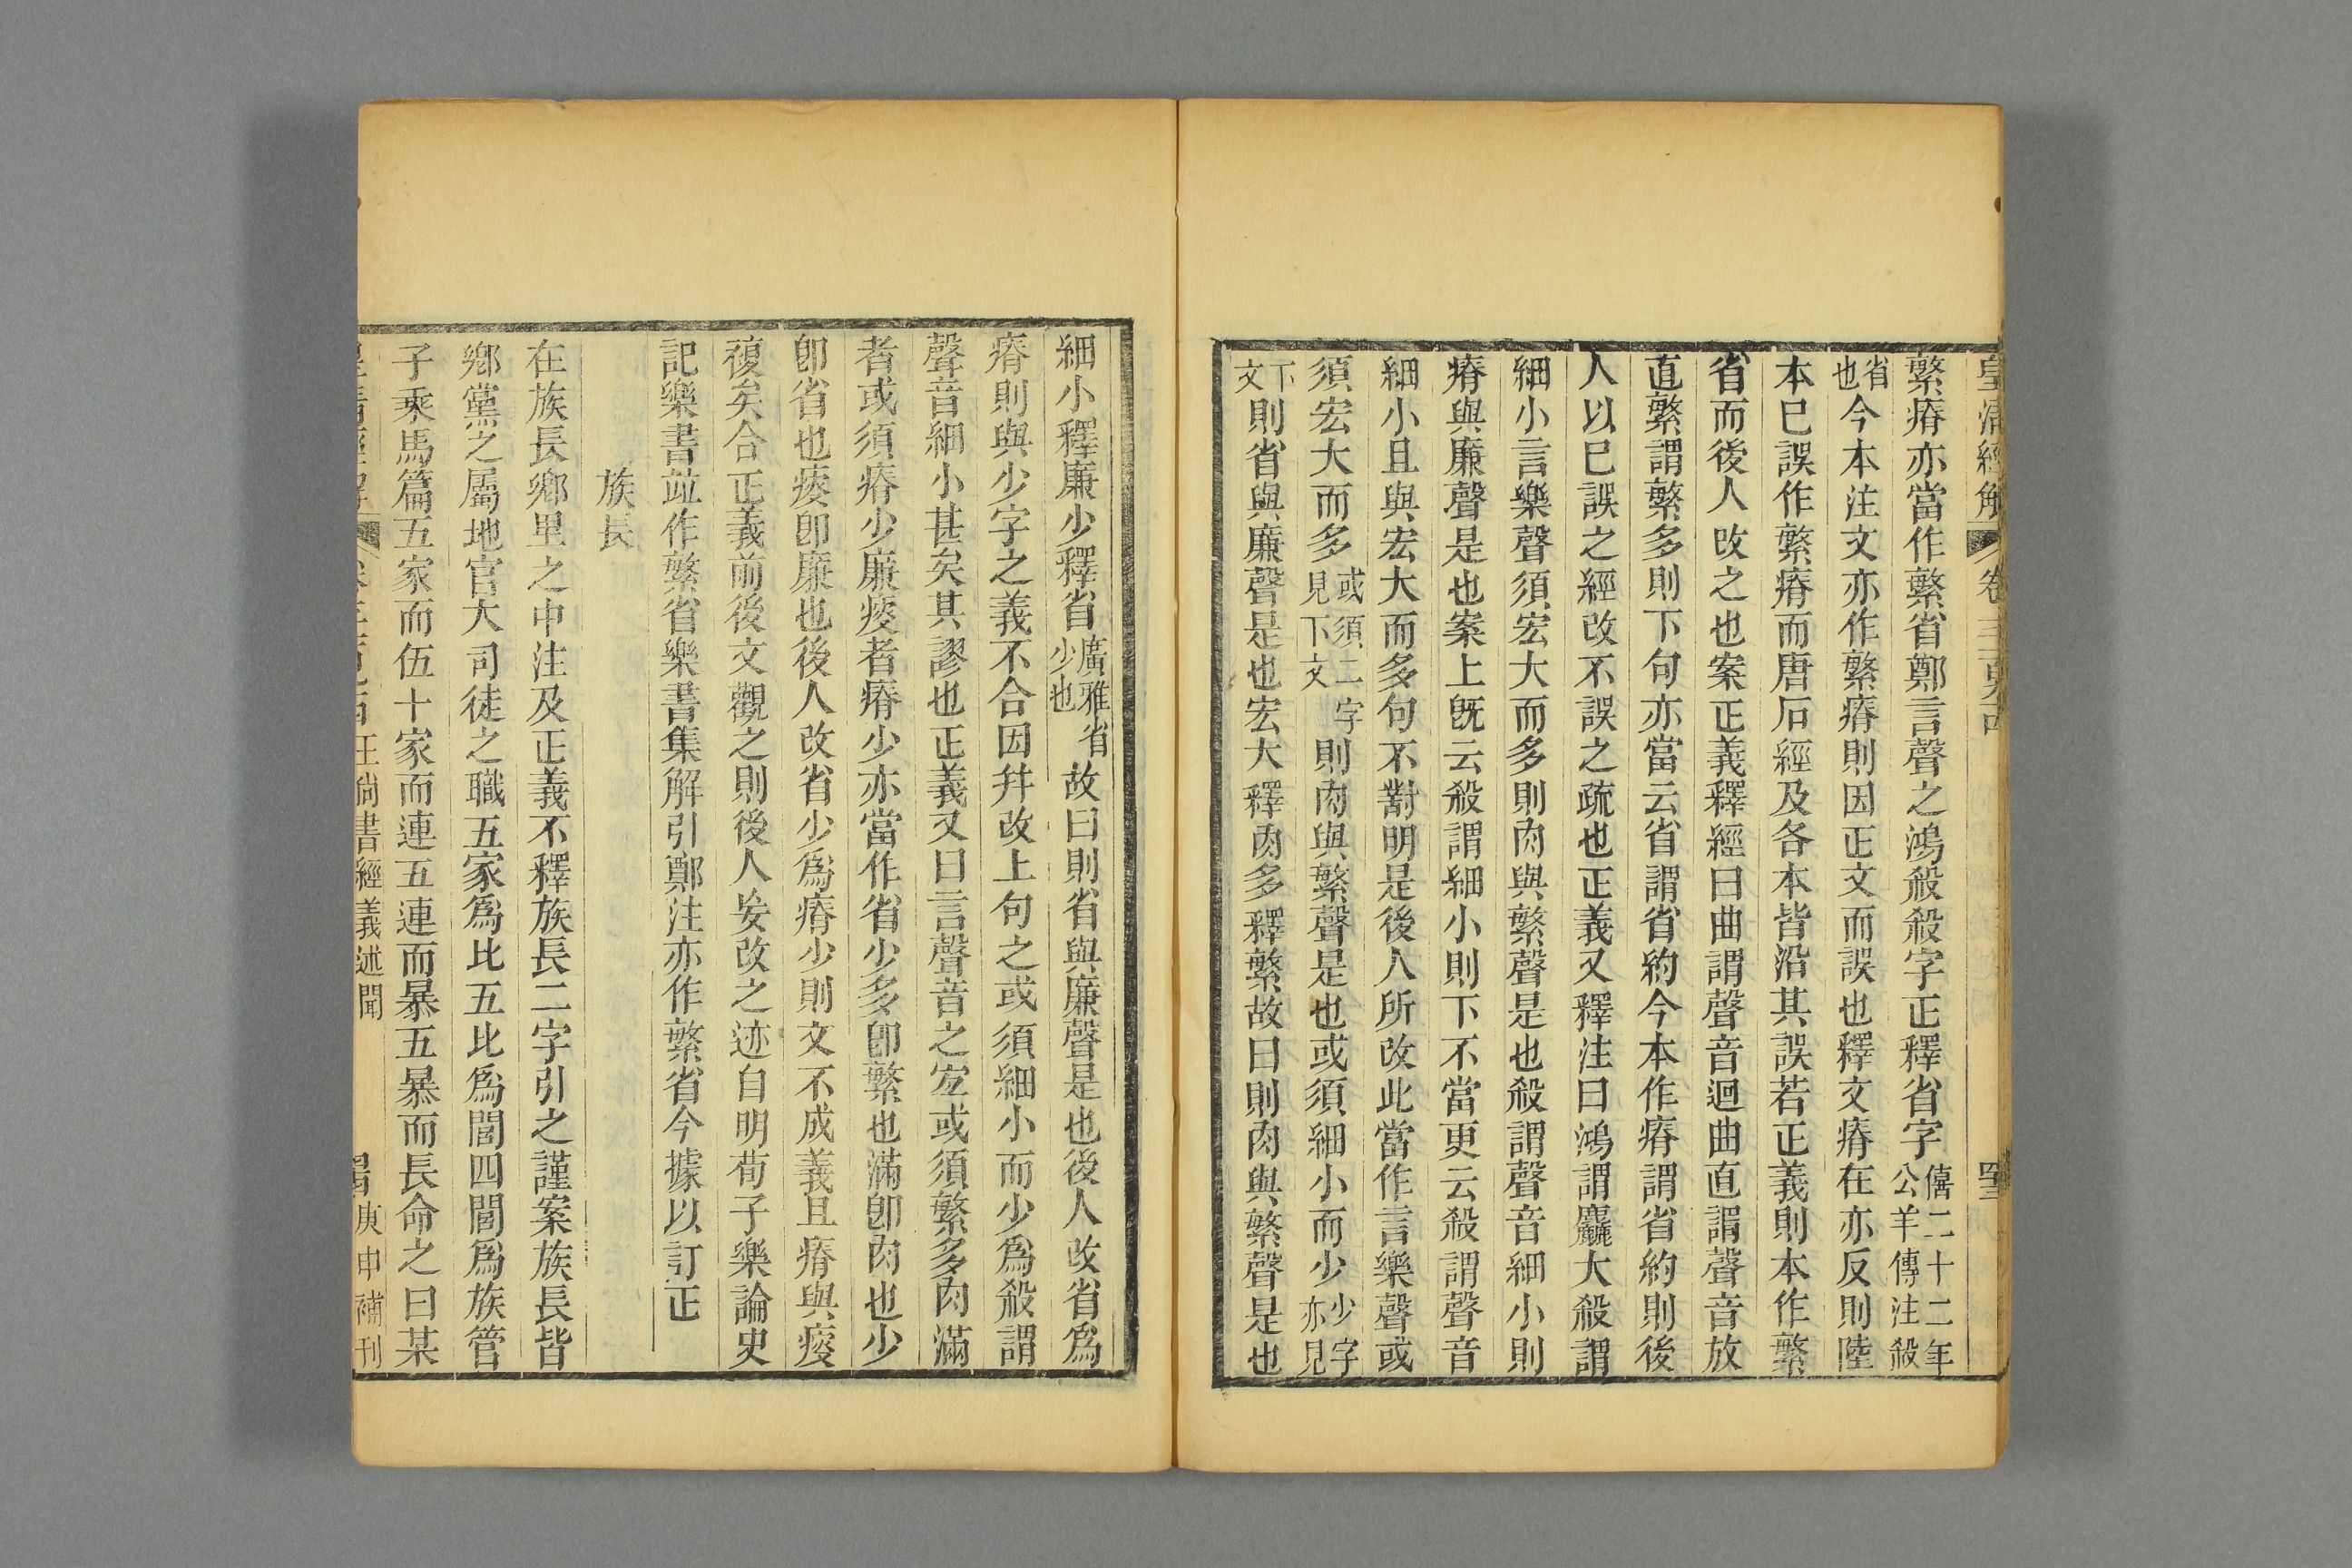 皇清經解 卷
繁瘠亦當作繁省鄭言聲之鴻殺殺字正釋省字僖二十二年公羊傳注殺
省也今本注文亦作繁瘠則因正文而誤也釋文瘠在亦反則陸
本已誤作繁瘠而唐石經及各本皆沿其誤若正義則本作繁
省而後人改之也案正義釋經曰曲謂聲音迴曲直謂聲音放
直繁謂繁多則下句亦當云省謂省約今本作瘠謂省約則後
人以已誤之經改不誤之疏也正義又釋注曰鴻謂麤大殺謂
細小言樂聲須宏大而多則肉與繁聲是也殺謂聲音細小則
瘠與廉聲是也案上旣云殺謂細小則下不當更云殺謂聲音
細小且與宏大而多句不對明是後人所改此當作言樂聲或
須宏大而多或須二字見下文則肉與繁聲是也或須細小而少少字亦見
下文則省與廉聲是也宏大釋肉多釋繁故曰則肉與繁聲是也
細小釋廉少釋省廣雅省少也故曰則省與廉聲是也後人改省爲
瘠則與少字之義不合因幷改上句之或須細小而少爲殺謂
聲音細小甚矣其謬也正義又曰言聲音之宏或須繁多肉滿
者或須瘠少廉瘦者瘠少亦當作省少多卽繁也滿卽肉也少
卽省也瘦卽廉也後人改省少爲瘠少則文不成義且瘠與瘦
複矣合正義前後文觀之則後人妄改之迹自明荀子樂論史
記樂書竝作繁省樂書集解引鄭注亦作繁省今據以訂正
族長
在族長鄉里之中注及正義不釋族長二字引之謹案族長皆
鄉黨之屬地官大司徒之職五家爲比五比爲閭四閭爲族管
子乘馬篇五家而伍十家而連五連而暴五暴而長命之曰某
王尙書經義述聞 庚申補刊